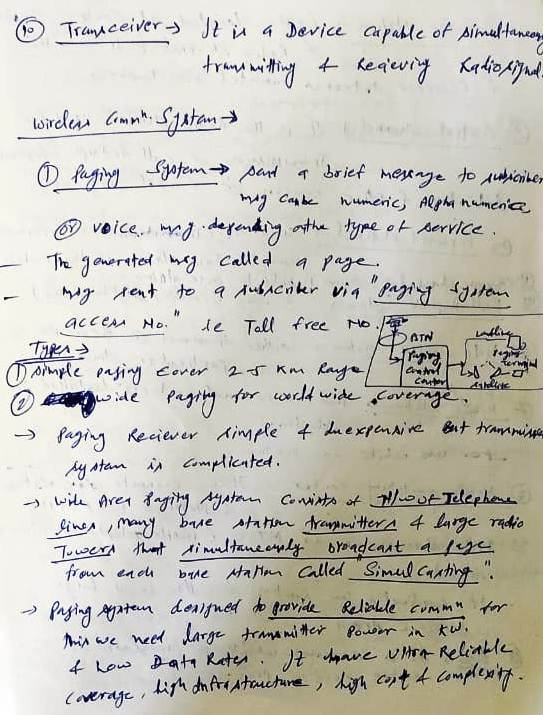 ⑩ Transceiver → It is a Device capable of simultaneous
transmitting & Recieving Radio signal.
wireless Commⁿ. System →
① Paging System → send a brief message to subscriber
msg can be numeric, Alpha numeric,
or voice msg depending on the type of service.
— The generated msg called a page.
— msg sent to a subscriber via "Paging System
access No." ie Toll free No.
Types →
① simple paging cover 2-5 Km Range
② wide Paging for world wide coverage.
PSTN
Paging
control
center
Landline
Paging
terminal
satellite
→ Paging Reciever simple & Inexpensive But transmission
system is complicated.
→ Wide Area Paging System Consists of N/w of Telephone
lines, many base station transmitters & large radio
Towers that simultaneously broadcast a page
from each base station called "Simul Casting".
→ Paging system designed to provide Reliable commⁿ for
this we need large transmitter Power in KW.
& Low Data Rates. It have Ultra Reliable
Coverage, high Infrastructure, high cost & complexity.